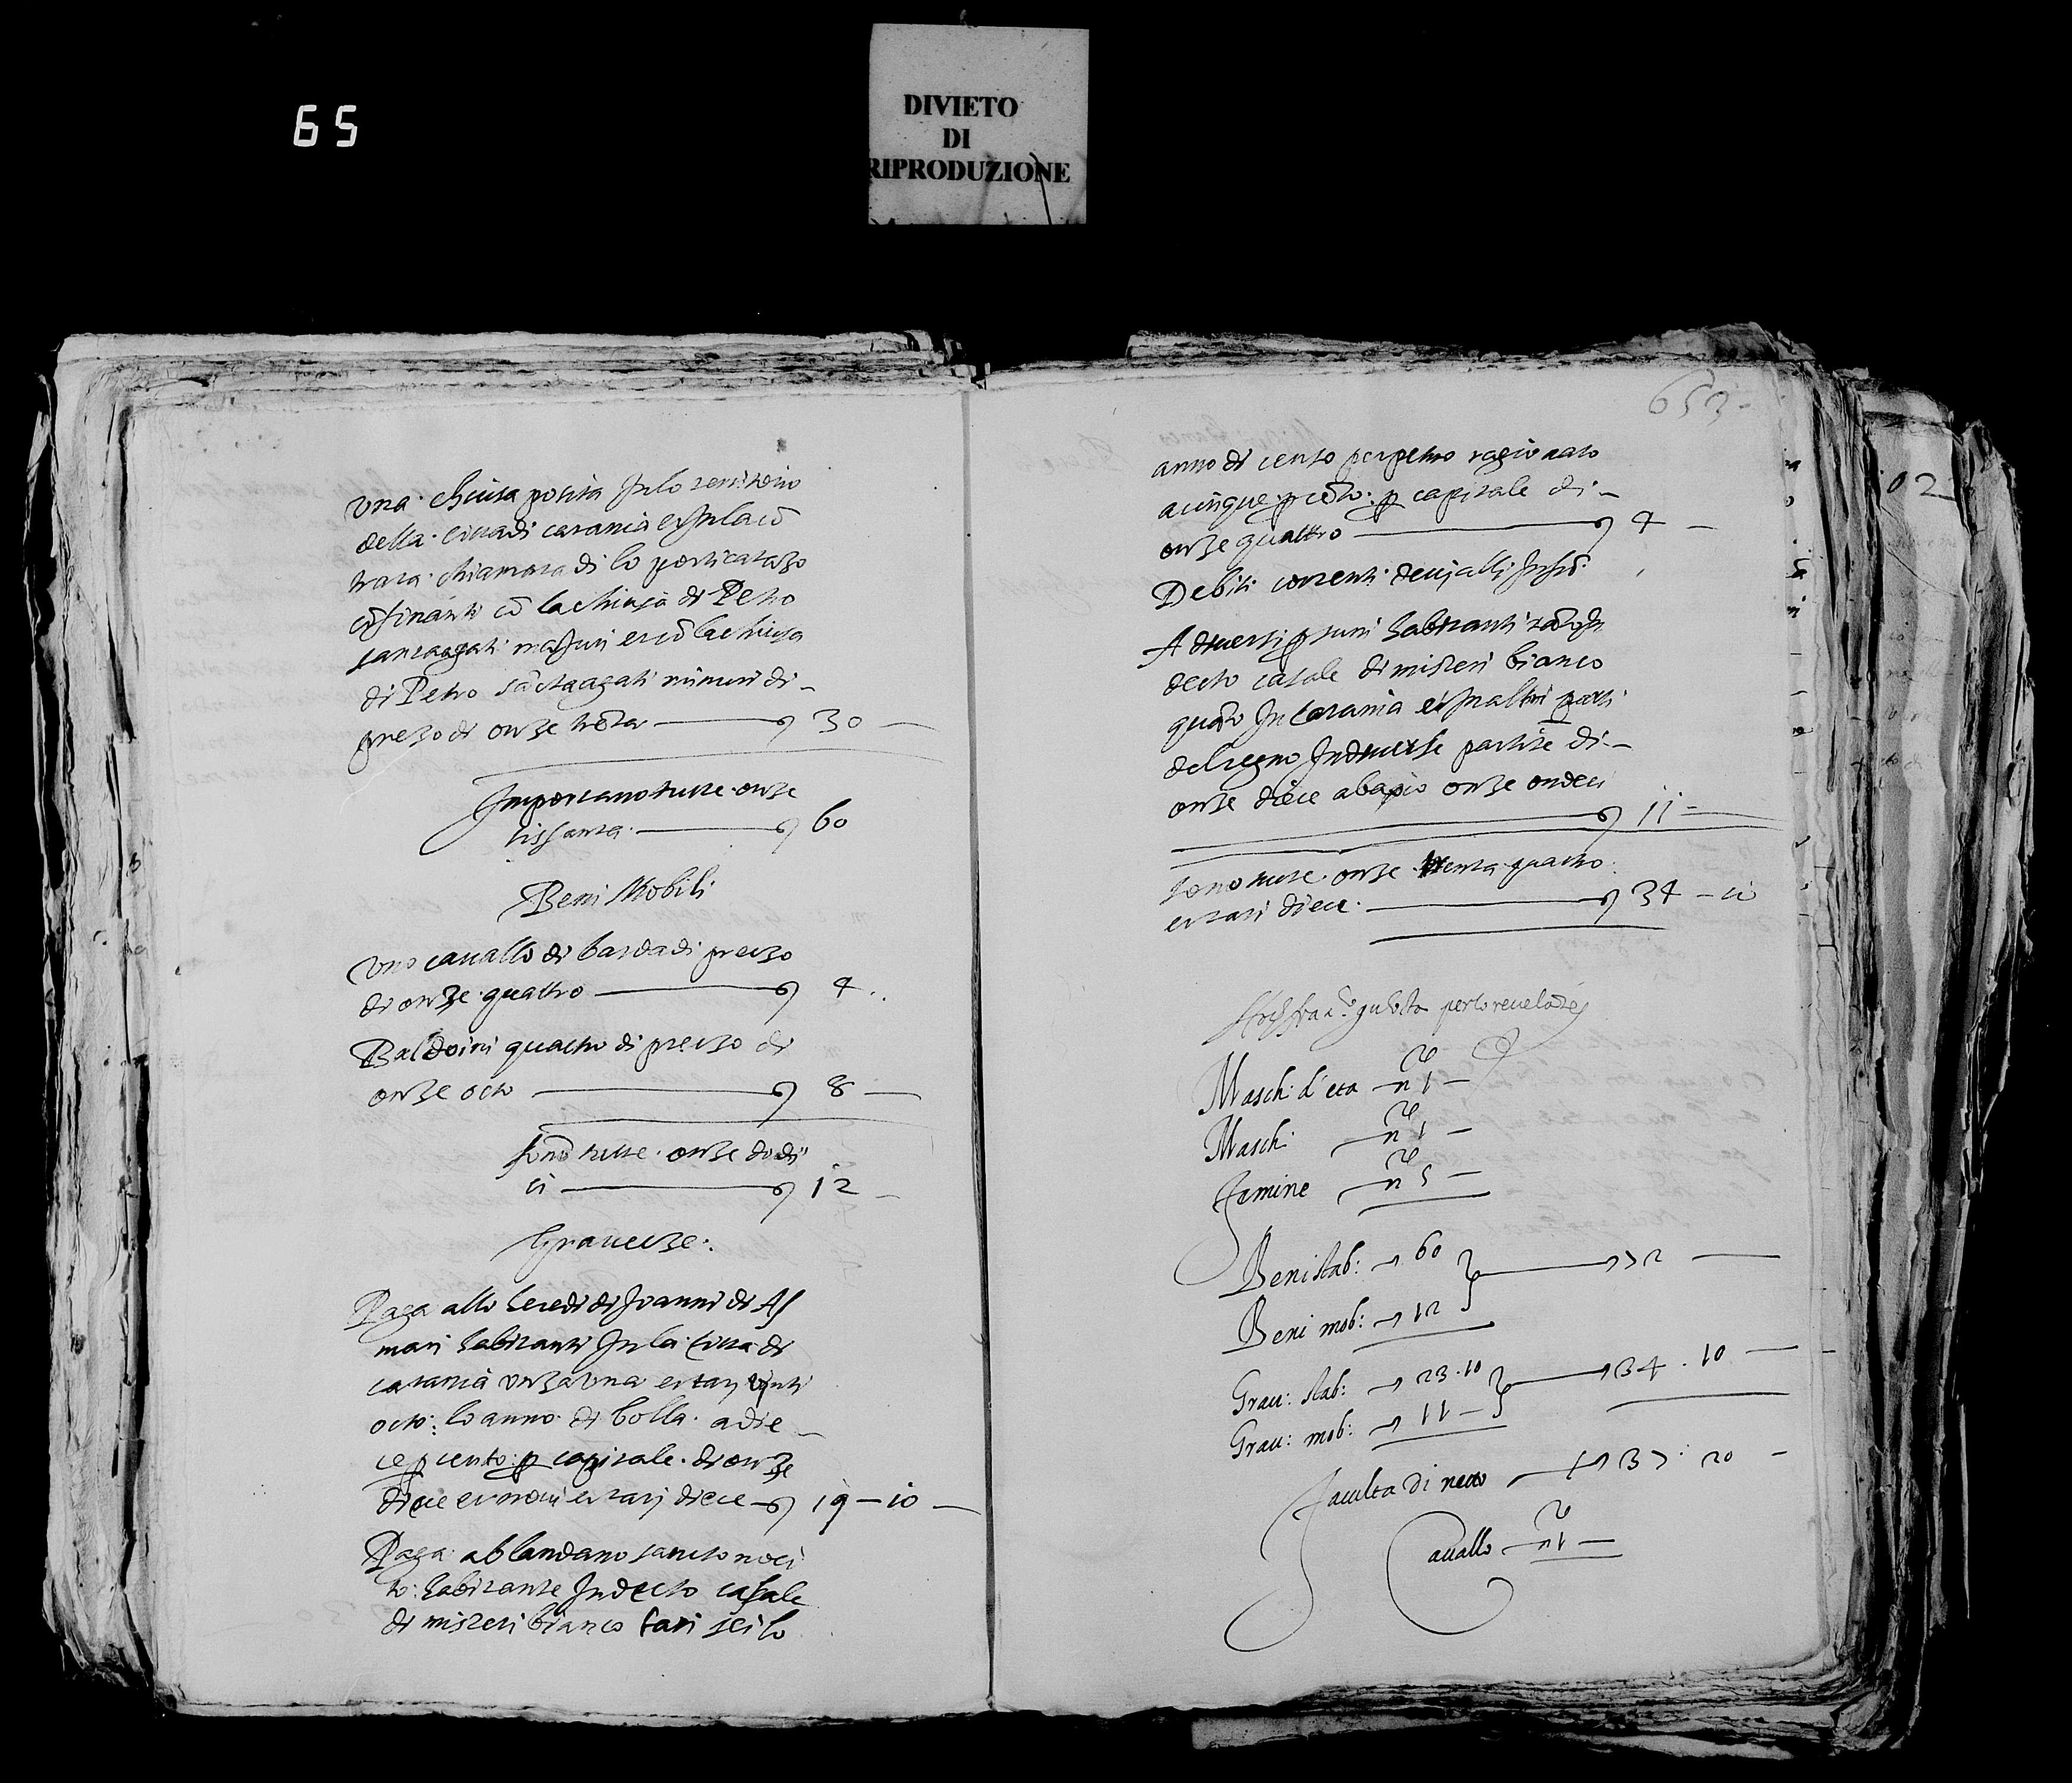 65
DIVIETO
DI
RIPRODUZIONE
una chiusa posita In lo territorio
della citta di catania et In la cō
trata chiamata di lo porticatazo
cōfinanti cō la chiusa di Petro
santaagati maJuri et cō la chiusa
di Petro sāctaagati minuri di
prezo di onze trēta 30
Importano tutte onze
sissanta 60
Beni Mobili
Uno cauallo di barda di prezzo
di onze quattro 4
Baldoini quactro di prezzo di
onze octo 8
sono tutte onze dudi
ci 12
Grauezze:
Paga allo heredi di Joanni di
mari habitanti In la citta di
catania unza una et tarj vinti
octo: lo anno di bolla a die
ce p cento: p capitale di onze
diece et novi et tarj diece 19 - 10
Paga a blandano sancto noci
to: habitante In decto casale
di misteri bianco tari sei lo
653
anno di censo perpetuo ragionato
a cinque p cēto: p capitale di
onze quattro 4
Debiti correnti
A diversi p suni habitanti
decto casale di misteri bianco
quāto In Catania et In altri parti
del regno In diverse partite di
onze diece abaxio onze ondeci
11
sono tutte onze trenta quactro
et tari diece 34 - 10
per lo revelante
Maschi d'eta n 1
Maschi n 1
Femine n 5
Beni stab: 60
72
Beni mob: 12
Grau: stab: 23.10
34.10
Grau: mob: 11
Faculta di netto 37: 20
Cauallo n 1
02